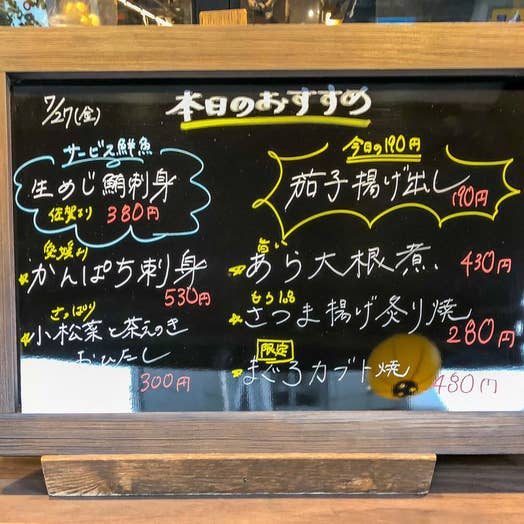 7/27(金)
本日のおすすめ
サービス鮮魚
生めじ鮪刺身
佐賀より 380円
愛媛より
かんぱち刺身
530円
さっぱり
小松菜と茶えのき
おひたし
300円
今日の190円
茄子揚げ出し
190円
旨い
あら大根煮 430円
もう1品
さつま揚げ炙り焼
280円
限定
まぐろカブト焼
480円